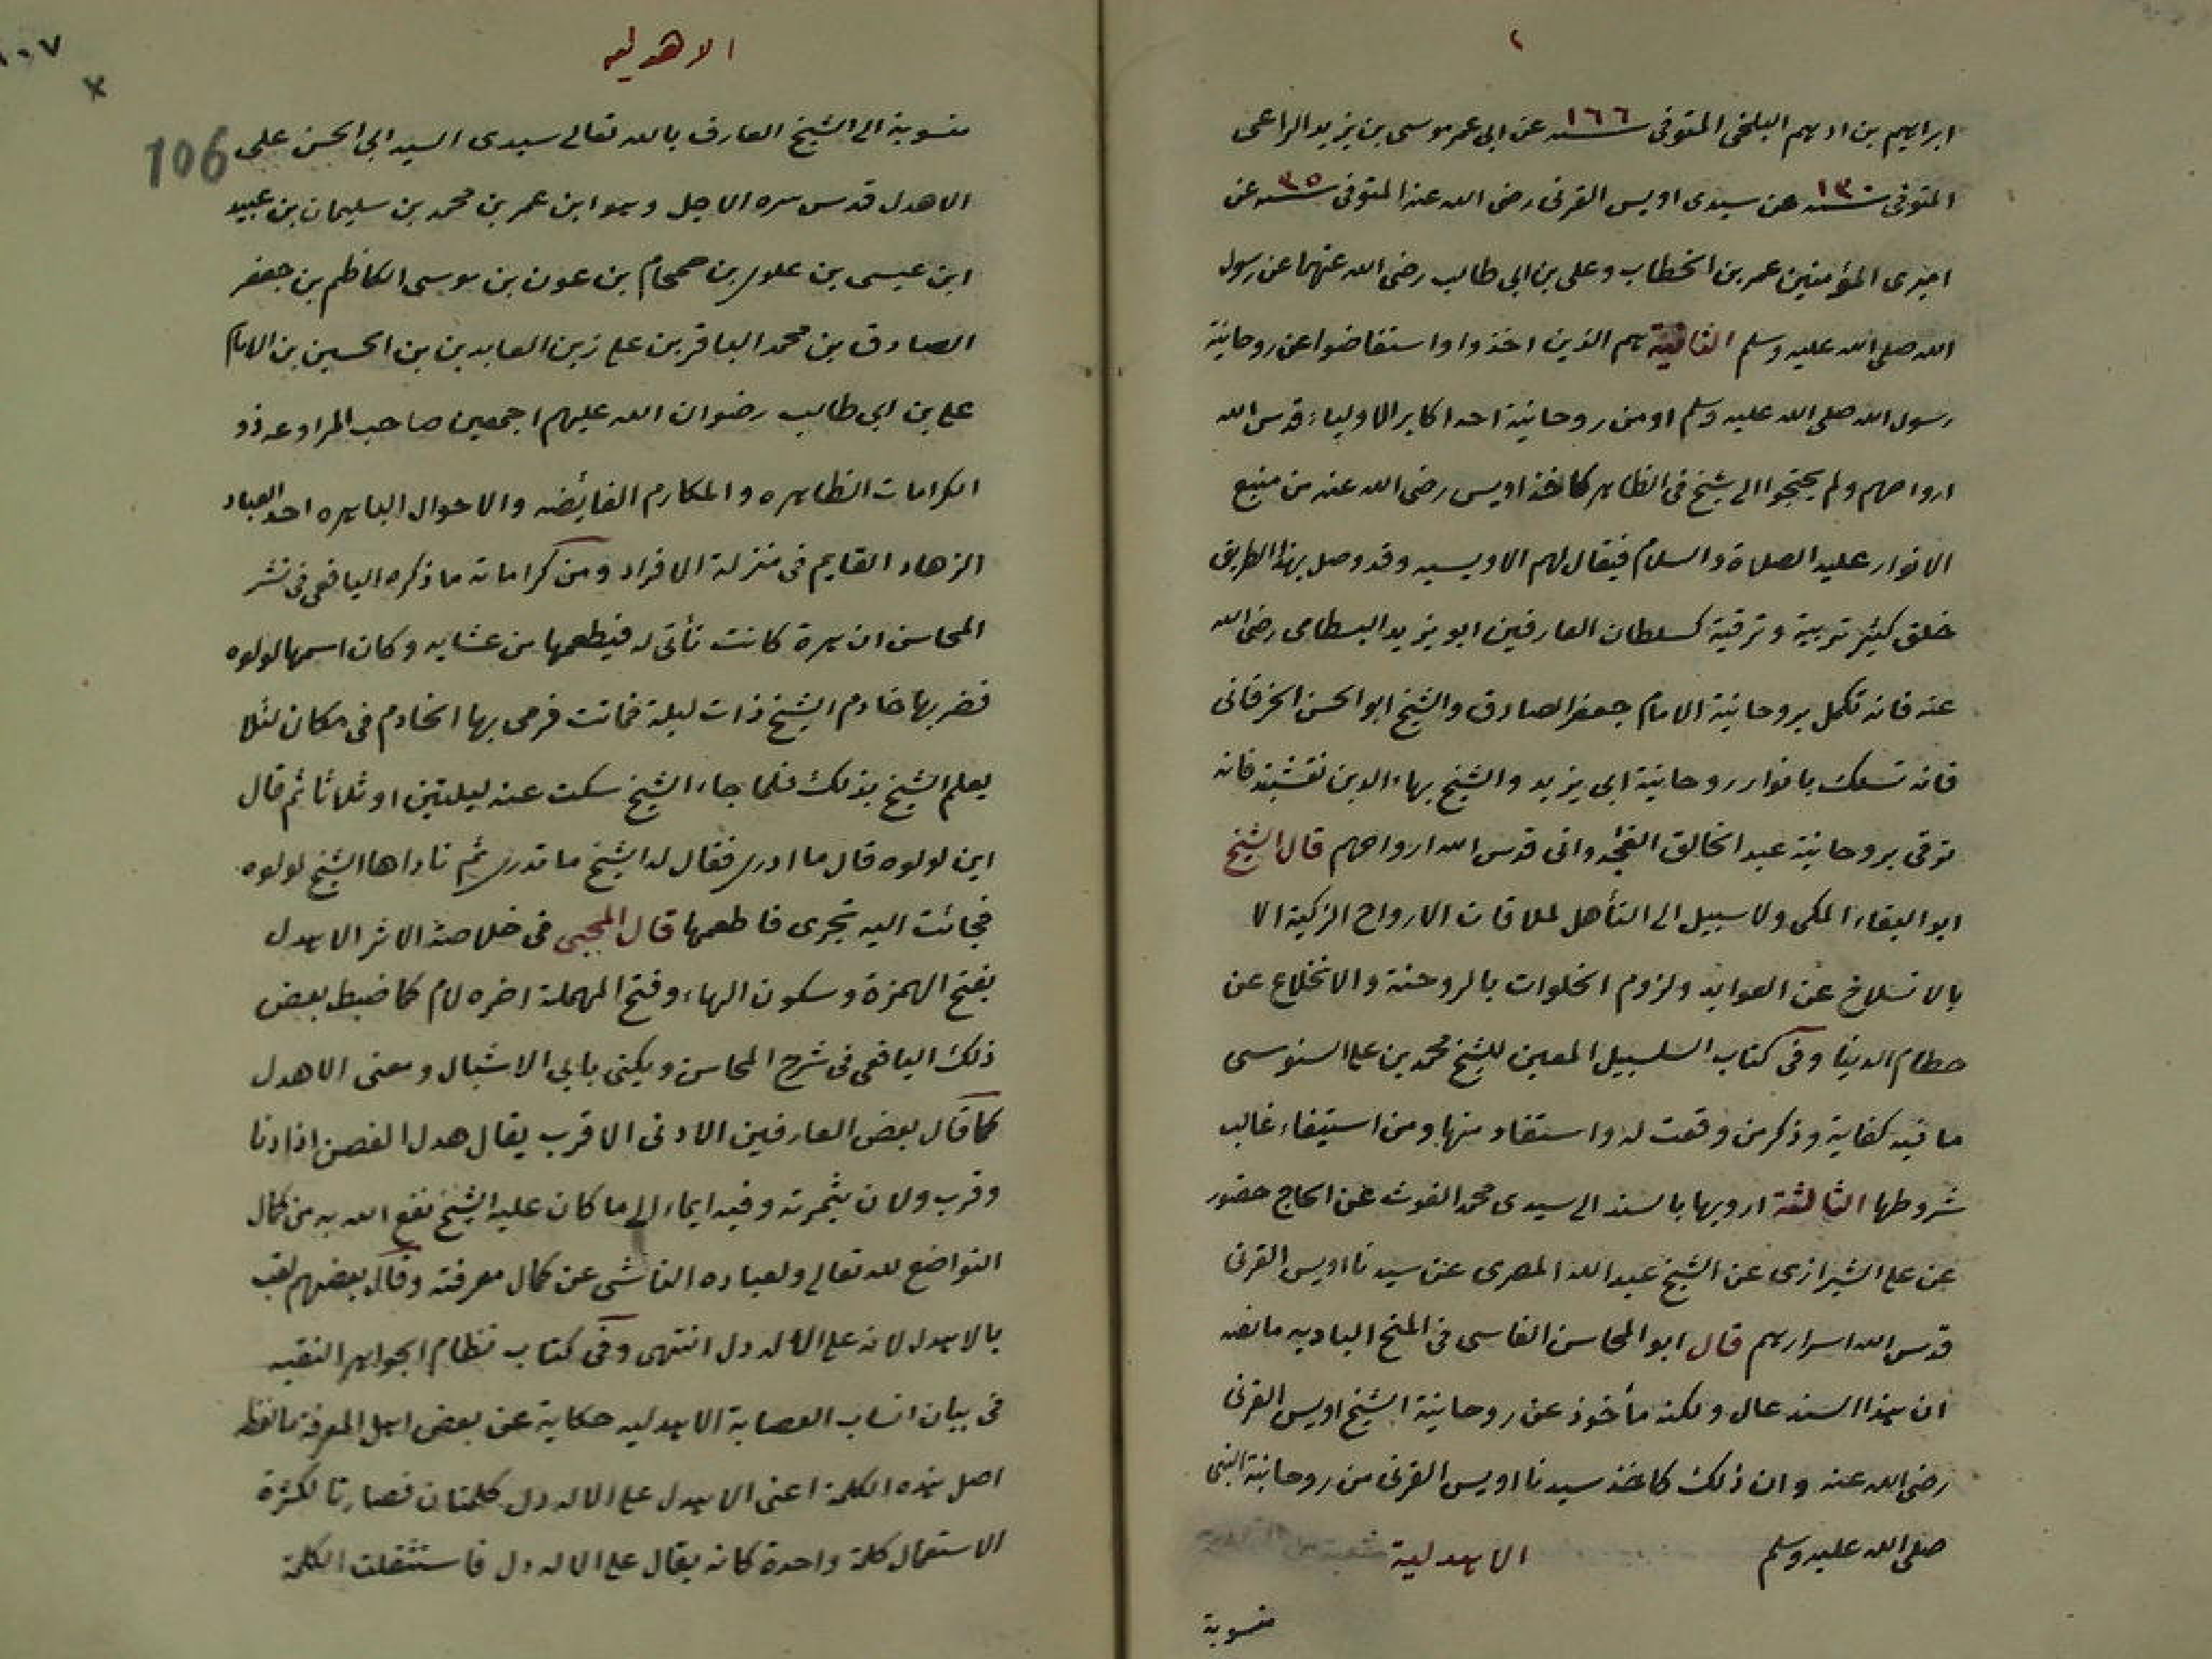 ٢
ابراهيم بن ادهم البلخى المتوفى سنه ١٦٦ عن ابى عمر موسى بن يزيد الراعى
المتوفى سنه ١٣٠ عن سيدى اويس القرنى رضى الله عنه المتوفى سنه ٣٥ عن
اميرى المؤمنين عمر بن الخطاب وعلى بن ابى طالب رضى الله عنهما عن رسول
الله صلى الله عليه وسلم الثانية هم الذين اخذوا واستفاضوا عن روحانية
رسول الله صلى الله عليه وسلم او من روحانية احد اكابر الاولياء قدس الله
ارواحهم ولم يحتجوا الى شيخ فى الظاهر كاخذ اويس رضى الله عنه من منبع
الانوار عليه الصلاة والسلام فيقال لهم الاويسيه وقد وصل بهذا الطريق
خلق كثير تربية وترقية كسلطان العارفين ابو يزيد البسطامى رضى الله
عنه فانه تكمل بروحانية الامام جعفر الصادق والشيخ ابو الحسن الخرقانى
فانه تسلك بانوار روحانية ابى يزيد والشيخ بهاء الدين نقشبند فانه
ترقى بروحانية عبد الخالق الغجدوانى قدس الله ارواحهم قال الشيخ
ابو البقاء المكى ولا سبيل الى التأهل لملاقات الارواح الزكية الا
بالانسلاخ عن العوايد ولزوم الخلوات بالروحنة والانخلاع عن
حطام الدنيا وفى كتاب السلسبيل المعين للشيخ محمد بن على السنوسى
ما فيه كفاية وذكر من وقعت له واستفاد منها ومن استيفاء غالب
شروطها الثالثة ارويها بالسند الى سيدى محمد الغوث عن الحاج حضور
عن على الشيرازى عن الشيخ عبد الله المصرى عن سيدنا اويس القرنى
قدس الله اسرارهم قال ابو المحاسن الفاسى فى المنح الباديه ما نصه
ان هذا السند عال ولكنه مأخوذ عن روحانية الشيخ اويس القرنى
رضى الله عنه وان ذلك كاخذ سيدنا اويس القرنى من روحانية النبى
صلى الله عليه وسلم الاهدلية
منسوبة
الاهدليه
١٠٧
106
منسوبة الى الشيخ العارف بالله تعالى سيدى السيد ابى الحسن على
الاهدل قدس سره الاجل وهو ابن عمر بن محمد بن سليمان بن عبيد
ابن عيسى بن علوى بن حمحام بن عون بن موسى الكاظم بن جعفر
الصادق بن محمد الباقر بن على زين العابدين بن الحسين بن الامام
على بن ابى طالب رضوان الله عليهم اجمعين صاحب المراوعه ذو
الكرامات الظاهره والمكارم الفائضه والاحوال الباهره احد العباد
الزهاد القايم فى منزلة الافراد ومن كراماته ما ذكره اليافعى فى نشر
المحاسن ان هرة كانت تأتى له فيطعمها من عشايه وكان اسمها لولوه
فضربها خادم الشيخ ذات ليلة فماتت فرمى بها الخادم فى مكان لئلا
يعلم الشيخ بذلك فلما جاء الشيخ سكت عنه ليلتين او ثلاثا ثم قال
اين لولوه قال ما ادرى فقال له الشيخ ما تدرى ثم ناداها الشيخ لولوه
فجائت اليه تجرى فاطعمها قال المحبى فى خلاصة الاثر الاهدل
بفتح الهمزة وسكون الهاء وفتح المهملة اخره لام كما ضبط بعض
ذلك اليافعى فى شرح المحاسن ويكنى بابى الاشبال ومعنى الاهدل
كما قال بعض العارفين الادنى الاقرب يقال هدل الغصن اذا دنا
وقرب ولان بثمرته وفيه ايماء الى ما كان عليه الشيخ نفع الله به من كمال
التواضع لله تعالى ولعباده الناشى عن كمال معرفته وقال بعضهم لقب
بالاهدل لانه على الاله دل انتهى وفى كتاب نظام الجواهر النقيه
فى بيان انساب العصابة الاهدليه حكاية عن بعض اهل المعرفة ما لفظه
اصل هذه الكلمة اعنى الاهدل على الاله دل كلمتان فصارتا لكثرة
الاستعمال كلمة واحدة كانه يقال على الاله دل فاستثقلت الكلمة